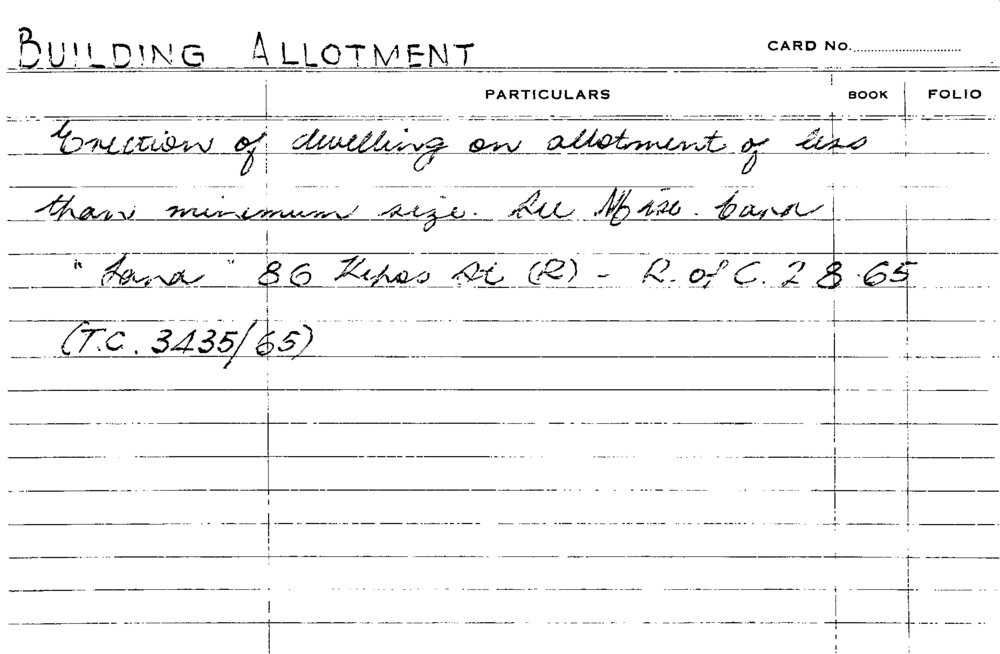 BUILDING ALLOTMENT
CARD No.
PARTICULARS BOOK FOLIO
Erection of dwelling on allotment of less
than minimum size. See Misc. Card
"Land" 86 Kepos St (R) - R. of C. 2 8 65
(T.C. 3435/65)